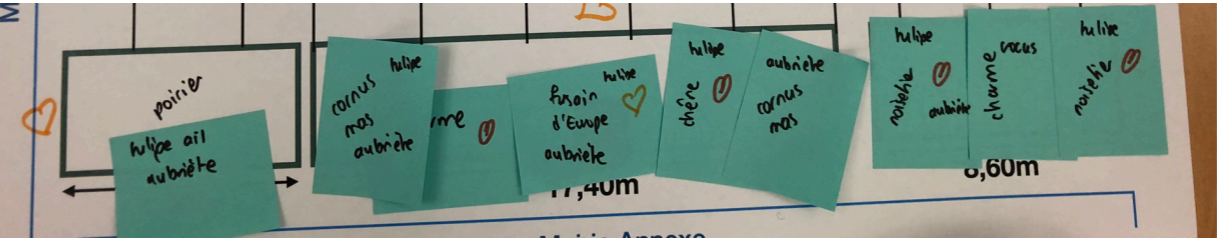 poirier
tulipe ail
aubriète
tulipe
cornus
mas
aubriète
rme
tulipe
fusain
d'Europe
aubriète
tulipe
chêne
aubriète
cornus
mas
tulipe
noisetie
aubriète
crocus
charme
tulipe
noisetier
17,40m
8,60m
Mairie Annexe